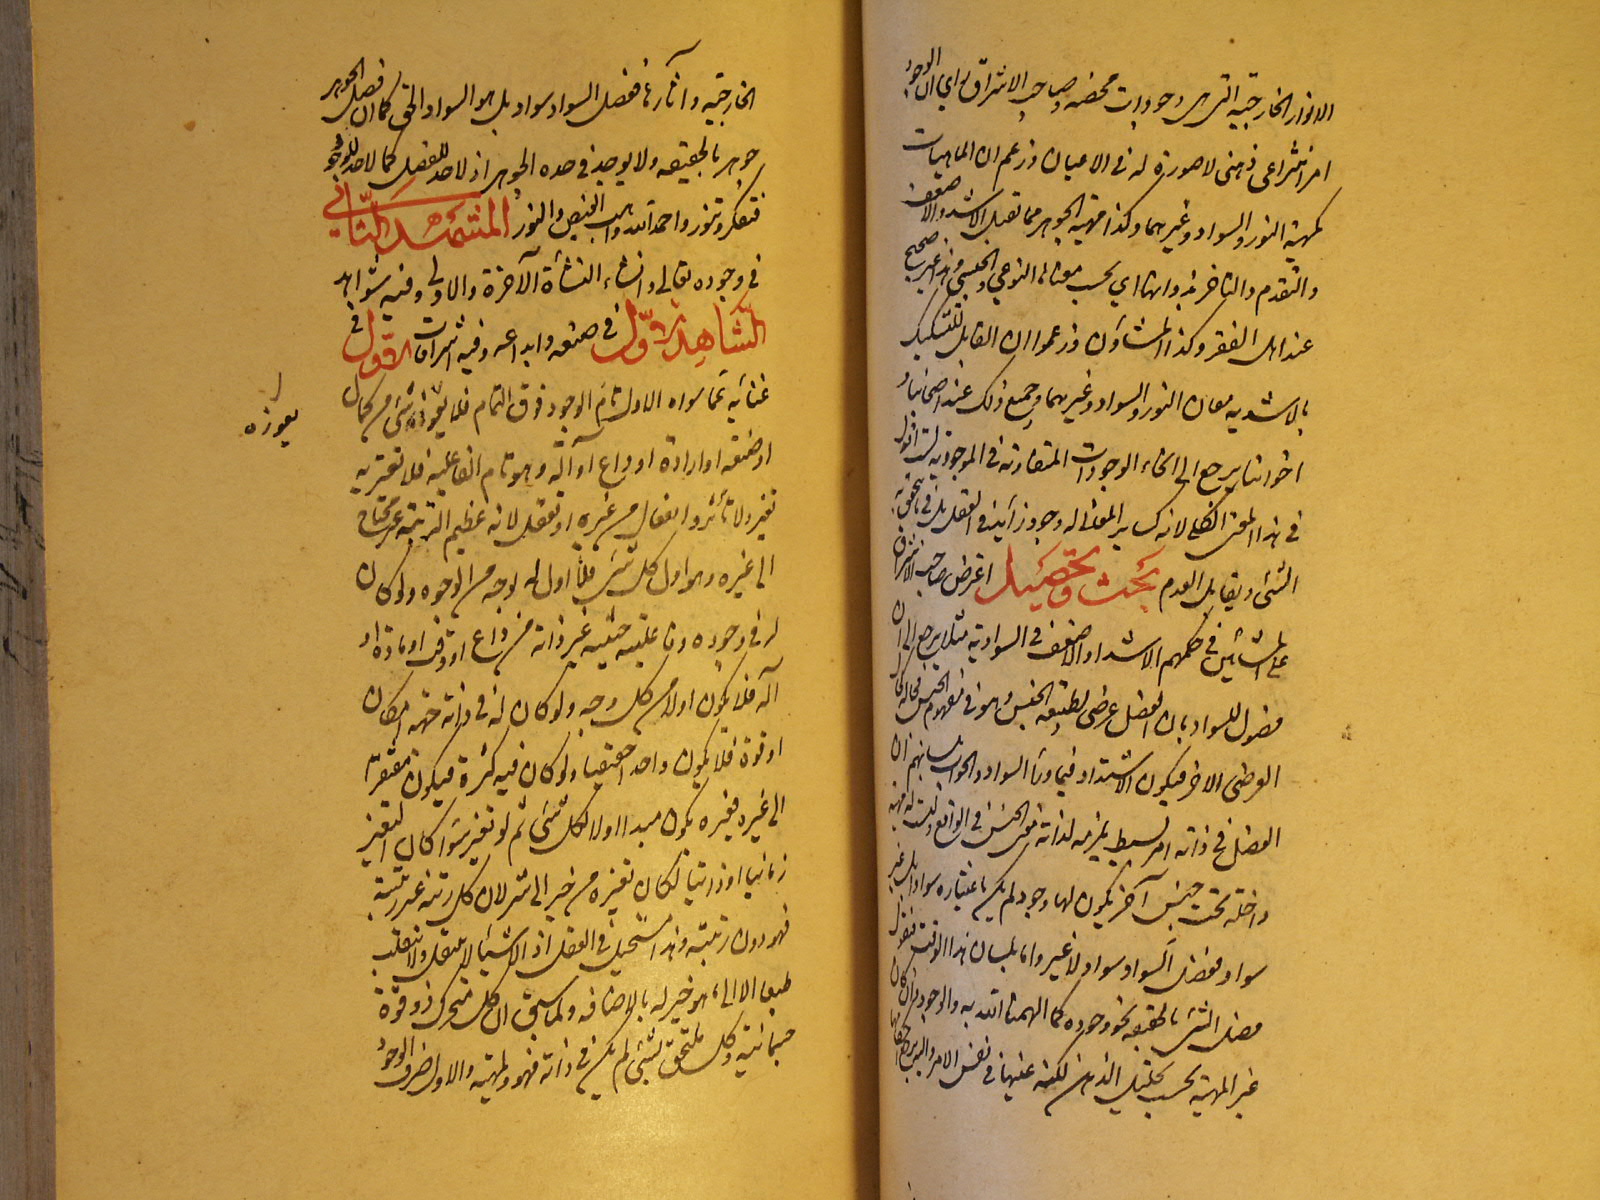 الانوار الخارجية التى هى وجودات محضه وصاحب الاشراق راى ان الوجود
امر انتزاعى ذهنى لا صورة له فى الاعيان وزعم ان الماهيات
كمهية النور والسواد وغيرهما وكذا مهية الجوهر مما تقبل الاشد والاضعف
والتقدم والتاخر بذواتها اى بحسب معناها النوعى والجنسى وهذا غير صحيح
عند اهل الفقر وكذا المشاؤن زعموا ان القابل للتشكيك
بالاشدية معان النور والسواد وغيرهما وجميع ذلك عند اصحابنا و
اخواننا يرجع الى انحاء الوجودات المتفاوته فى الموجودية لست اقول
فى هذا المعنى الكلى لانه كساير المعانى له وجود زايد فى العقل بل فى ما يتحقق به
الشئ ويقابل العدم بحث وتحصيل اعترض صاحب الاشراق
على المشائين فى حكمهم الاشد والاضعف فى السوادية مثلا يرجع الى ان
فصول للسواد بان الفصل عرضى لطبيعة الجنس وهو فى مفهوم الجنس كحال
العرضى الاخر فيكون الاشتداد فيما وراء السواد والجواب منا بانهم ان
الفصل فى ذاته امر بسيط يلزمه لذاته معنى الجنس فى الواقع وليست له مهية
داخلة تحت جنس آخر يكون لها وجود لم يكن باعتباره سوادا بل غير
سواد ففصل السواد سواد لا غير واما بلسان هذا الوقت فنقول
فصل الشئ بالحقيقة نحو وجوده كما الهمنا الله به والوجود وان كان
غير المهية بحسب تحليل الذهن لكنه عينها فى نفس الامر واليه يرجع احكامها
الخارجيه وآثارها ففصل السواد سواد بل هو السواد الحق كما ان فصل الجوهر
جوهر بالحقيقه ولا يوجد فى حده الجوهر اذ لا حد للفصل كما لا حد للوجود
فتفكر وتنور واحمد الله واهب الفيض والنور المشهد الثانى
فى وجوده تعالى وانشاء النشأة الآخرة والاولى وفيه شواهد
الشاهد الاول فى صنعه وابداعه وفيه اشراقات الاول فى
غنائه عما سواه الاول تام الوجود فوق التمام فلا يعوزه شئ من كمال
يعوزه
او صفة او ارادة او داع او آلة وهو تام الفاعلية فلا تعتريه
تغير ولا تأثر وانفعال من غيره او تعقل لانه عظيم الرتبة غير محتاج
الى غيره وهو اول كل شئ فلا اول له لوجه من الوجوه ولو كان
له فى وجوده وفاعليته حيثية غير ذاته من داع او وقت او مادة او
آلة فلا يكون اولا من كل وجه ولو كان له فى ذاته جهة امكان
او قوة فلا يكون واحدا حقيقيا ولو كان فيه كثرة فيكون مفتقرا
الى غيره فغيره يكون مبدا اولا لكل شئ ثم لو تغير سواء كان التغير
زمانيا او ذاتيا لكان تغيره من خير الى شر لان كل رتبة غير رتبته
فهو دون رتبته وهذا مستحيل فى العقل اذ الاشياء لا ينتقل ولا ينقلب
طبعا الا الى ما هو خير له بالاضافه ولما سبق ان كل متحرك ذو قوة
جسمانية وكل ملتحق لشئ لم يكن فى ذاته فهو ذو مهية والاول صرف الوجود